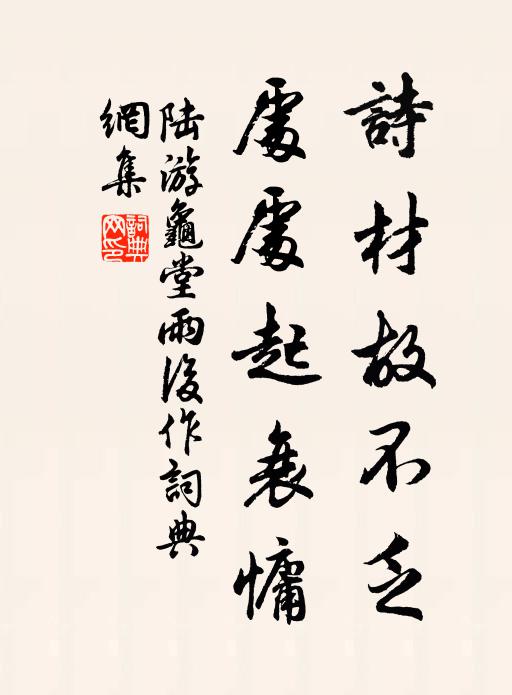 詩材故不乏
處處起衰慵
陆游龜堂雨後作詞典
網集
詞典網印